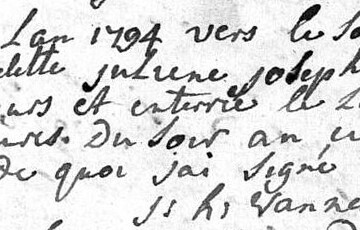 Lan 1794 vers le so
dette juliene joseph
urs et enterrée le
ures. Du soir an
de quoi jai signé
js hs vanne